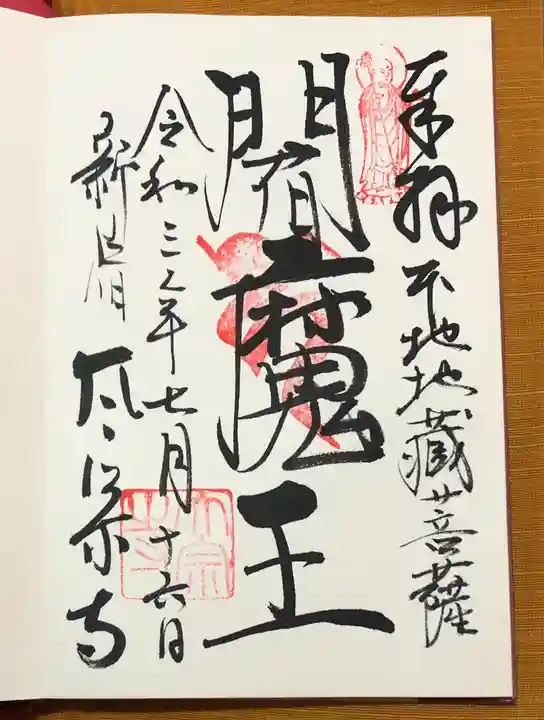 奉拝
本地地藏菩薩
閻魔王
令和三年七月十六日
寺